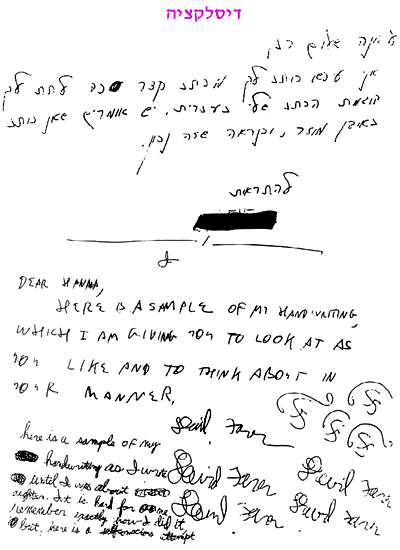 דיסלקציה
שלום
אני כותב לך מכתב קצר כדי לתת לך
דוגמת הכתב שלי בעברית. יש אומרים שאני כותב
באופן מוזר, וכנראה שזה נכון.
להתראות
DEAR HANNA,
HERE IS A SAMPLE OF MY HANDWRITING,
WHICH I AM GIVING YOU TO LOOK AT AS
YOU LIKE AND TO THINK ABOUT IN
YOUR MANNER.
here is a sample of my
handwriting as I wrote
until I was about
eighteen. It is hard for me
remember exactly how I did it
but, here is a attempt
David
David David
David David